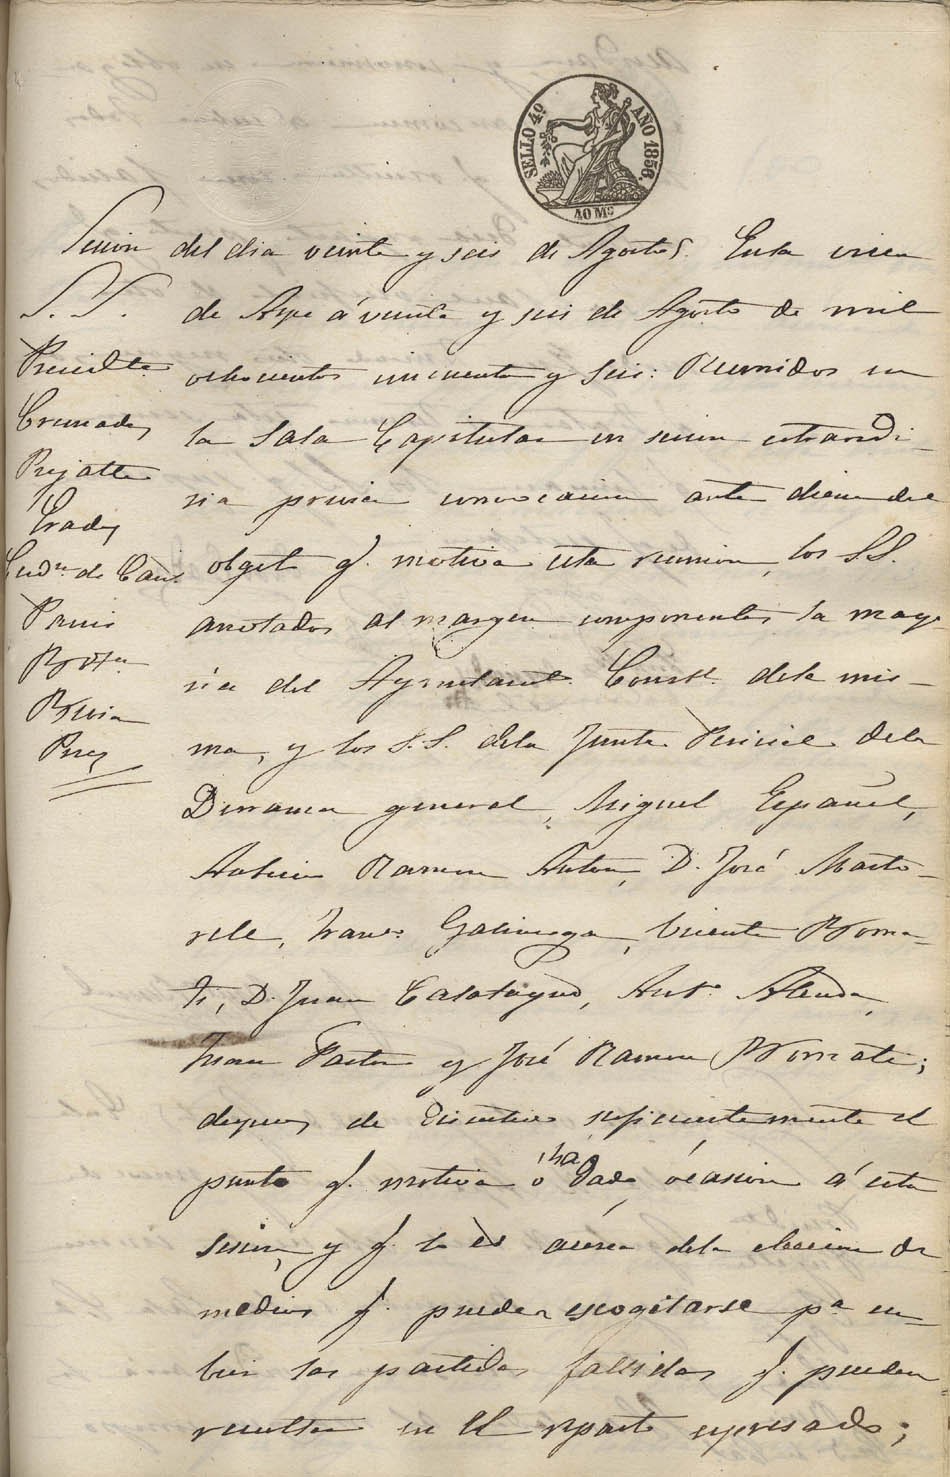 SELLO 4º AÑO 1856.
40 Ms
Sesion del dia veinte y seis de Agosto. En la
S. S.
Presidte
Cremades
Prades
de
Pavia
Perez
de Aspe á veinte y seis de Agosto de mil
ochocientos cincuenta y seis: Reunidos en
la Sala Capitular en sesion estraordi-
ria previa convocacion ante diem del
objeto q. motiva esta reunion, los S.S.
anotados al margen componentes la mayo-
ria del Ayuntamt. Constl. de la mis-
ma, y los S.S. de la Junta Pericial de la
Derrama general, Miguel Español,
Antonio Ramon Anton, D. José Marto-
rell, Franco. Galinsoga, Vicente
D. Juan Calatayud, Anto. Alenda,
Juan Pastor y José Ramon
despues de discutir suficientemente el
punto q. motiva o ha dado ocasion á esta
sesion, y q. lo es acerca de la eleccion de
medios q. puedan escogitarse pa. cu-
brir las partidas fallidas q. puedan
resultar en el reparto espresado;